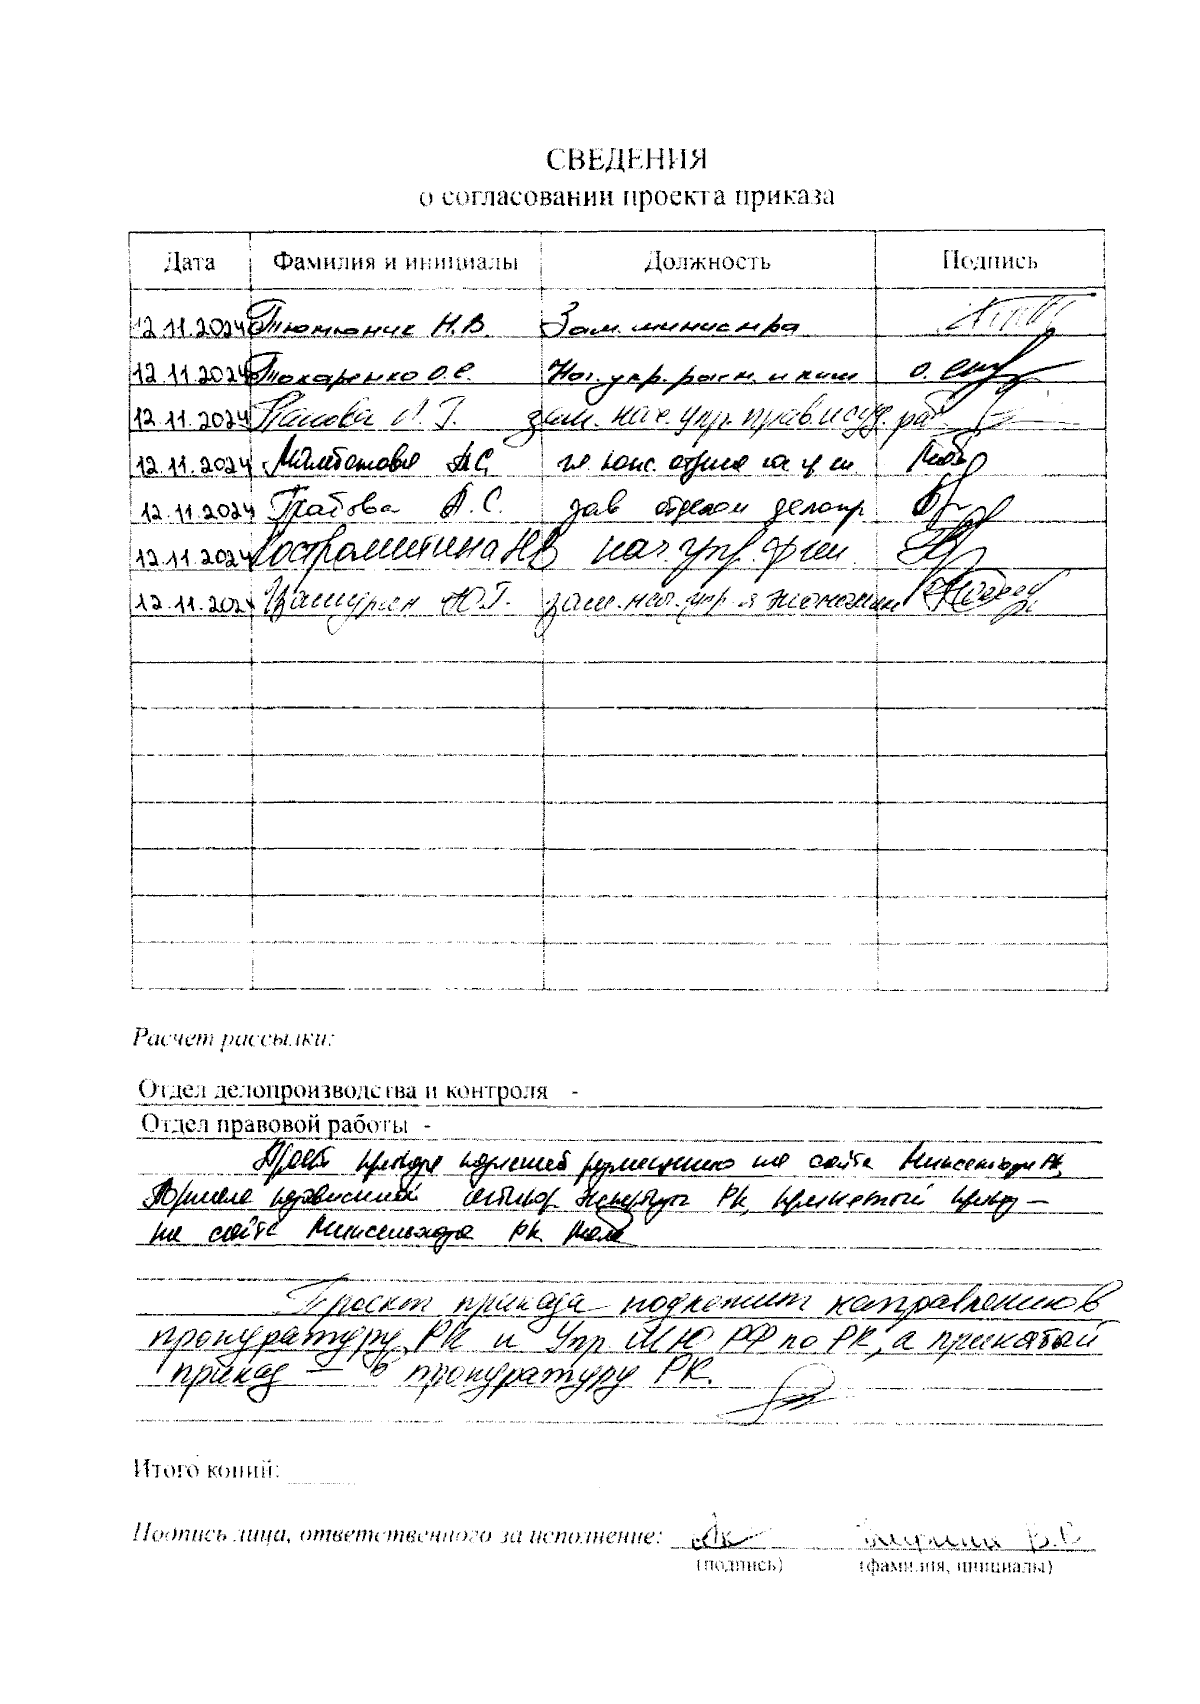 СВЕДЕНИЯ
о согласовании проекта приказа
Дата Фамилия и инициалы Должность Подпись
12.11.2024 Тютюник Н.В. Зам. министра
12.11.2024 Токаренко О.С. Нач. упр.
12.11.2024 зам. нач. упр. прав. и суд. раб
12.11.2024 А.С.
12.11.2024 Грабова А.С. зав отделом делопр
12.11.2024 Костромитина Н В нач. упр. фин
12.11.2024 Ю.Г. зам. нач. упр
Расчет рассылки:
Отдел делопроизводства и контроля -
Отдел правовой работы -
Проект приказа подлежит размещению на сайте
РК, принятый приказ –
на сайте Минсельхоза РК
Проект приказа подлежит направлению в
прокуратуру РК и Упр МЮ РФ по РК, а принятый
приказ – в прокуратуру РК.
Итого копий:
Подпись лица, ответственного за исполнение:
(подпись) (фамилия, инициалы)